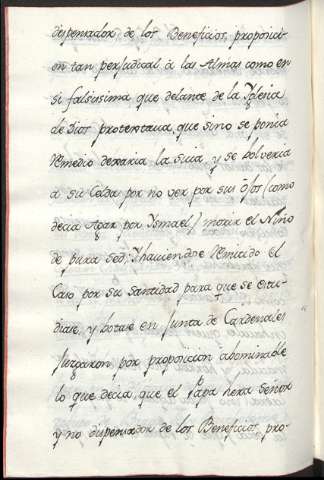 dispensador de los Beneficios, proposici-
on tan perjudicial à las Almas como en
si falsissima que delante de la Yglesia
de Dios protestaua, que sino se ponia
remedio dexaria la suia, y se bolveria
a su Celda por no ver por sus ojos (como
decia Agar por Ysmael) morir el Niño
de pura sed; Y haviendose remitido el
Caso por su Santidad para que se estu-
diase, y botase en Junta de Cardenales
Juzgaron por proposicion abominable
lo que decia, que el Papa hera Señor
y no dispensador de los Beneficios, pro-